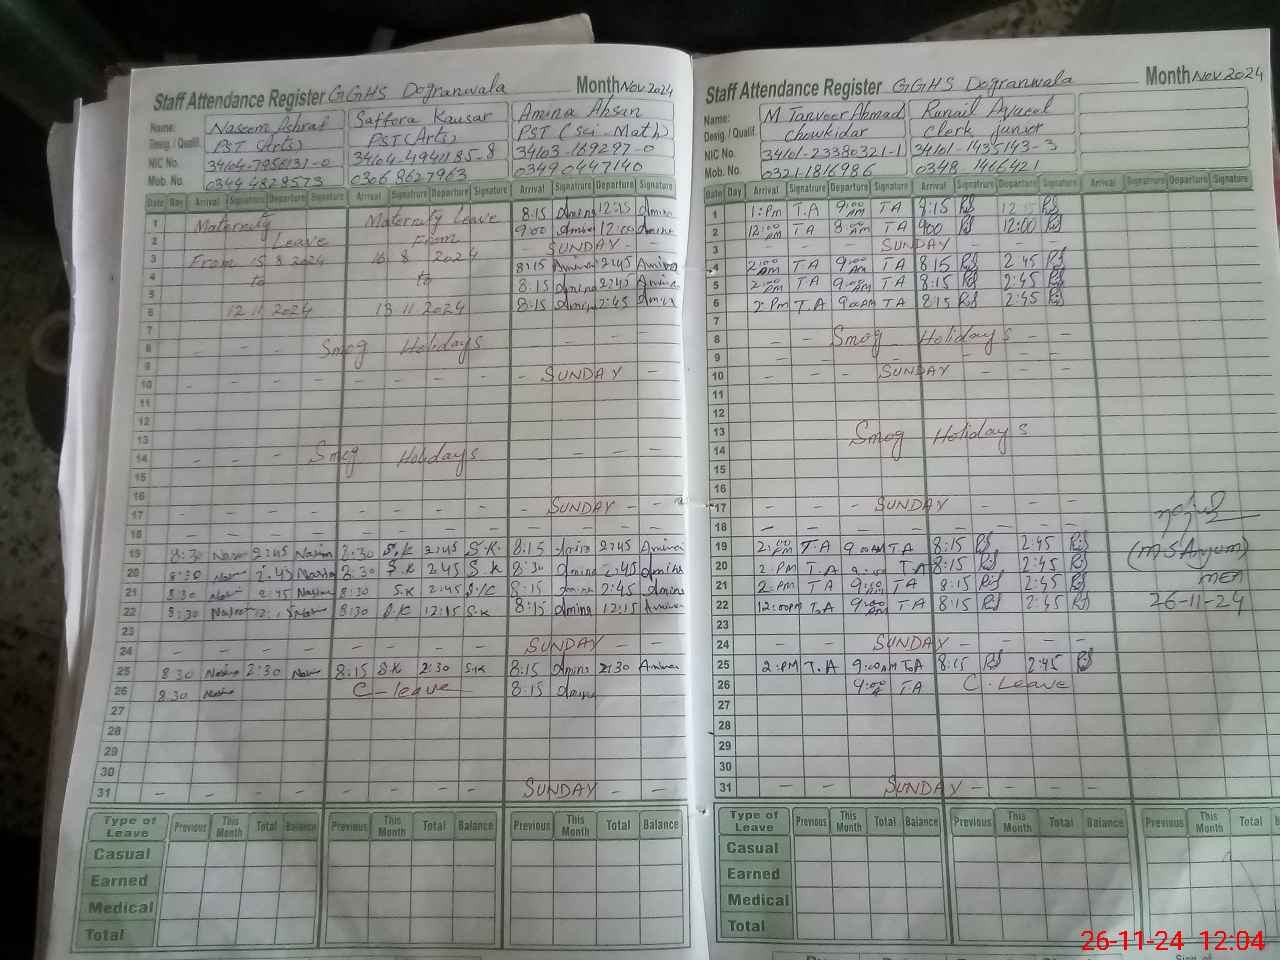 Staff Attendance Register GGHS Dogranwala Month Nov 2024
Name: Naseem Ashraf Saffora Kausar Amina Ahsan
Desig. / Qualif. PST (Arts) PST (Arts) PST (Sci-Math)
NIC No. 34104-7956131-0 34104-4941185-8 34103-169297-0
Mob. No. 0344 4829573 0306 8627963 03490447140
Date Day Arrival Signature Departure Signature Arrival Signature Departure Signature Arrival Signature Departure Signature
1 Maternity Maternity Leave 8:15 Amina 12:15 Amina
2 Leave From 9:00 Amina 12:00 Amina
3 From 15 8 2024 16 8 2024 - SUNDAY - -
4 to to 8:15 Amina 2:45 Amina
5 8:15 Amina 2:45 Amina
6 12 11 2024 13 11 2024 8:15 Amina 2:45 Amina
7
8 - - - Smog Holidays - - -
9
10 - - - - - - - - SUNDAY - -
11
12
13
14 - - - Smog Holidays - - - -
15
16
17 - - - - - - - - SUNDAY - -
18 - - - - - - - - - - - -
19 8:30 2:45 Nasim 8:30 S.K 2:45 S.K. 8:15 Amina 2:45 Amina
20 8:30 2:45 8:30 S.K 2:45 S.K 8:30 Amina 2:45 Amina
21 8:30 2:45 8:30 S.K 2:45 S.K 8:15 Amina 2:45 Amina
22 8:30 12:15 8:30 S.K 12:15 S.K 8:15 Amina 12:15 Amina
23
24 - - - - - - - - SUNDAY - -
25 8 30 2:30 8:15 S.K 2:30 S.K 8:15 Amina 2:30 Amina
26 8:30 C-leave 8:15 Amina
27
28
29
30
31 - - - - - - - - SUNDAY - -
Type of Leave Previous This Month Total Balance Previous This Month Total Balance Previous This Month Total Balance
Casual
Earned
Medical
Total
Staff Attendance Register GGHS Dogranwala Month Nov 2024
Name: M Tanveer Ahmad
Desig. / Qualif. Chowkidar Clerk Junior
NIC No. 34101-23380321-1 34101-1435143-3
Mob. No. 0321-1816986 0348 1466421
Date Day Arrival Signature Departure Signature Arrival Signature Departure Signature Arrival Signature Departure Signature
1 1:Pm T.A 9:00 AM TA 8:15 12:15
2 12:00 Pm TA 8:00 AM TA 900 12:00
3 - - - SUNDAY - - -
4 2:00 TA 9:00 AM TA 8:15 2:45
5 2:00 PM TA 9:00 AM TA 8:15 2:45
6 2:Pm T.A 9:00 AM TA 8:15 2:45
7
8 - - Smog Holidays -
9 - - - - - - -
10 - - - SUNDAY - - -
11
12
13 Smog Holidays
14
15
16
17 - - - SUNDAY - - -
18 - - - - - - - -
19 2:00 PM T.A 9:00 AM T.A 8:15 2:45 (M S Anjum)
20 2:PM T.A T.A 8:15 2:45
21 2:PM TA 9:00 AM TA 8:15 2:45 MEA
22 12:00pm T.A 9:00 AM TA 8:15 2:45 26-11-24
23
24 - - - SUNDAY - - -
25 2:PM T.A 9:00AM T.A 8:15 2:45
26 TA C.Leave
27
28
29
30
31 SUNDAY - - - -
Type of Leave Previous This Month Total Balance Previous This Month Total Balance Previous This Month Total
Casual
Earned
Medical
Total
26-11-24 12:04